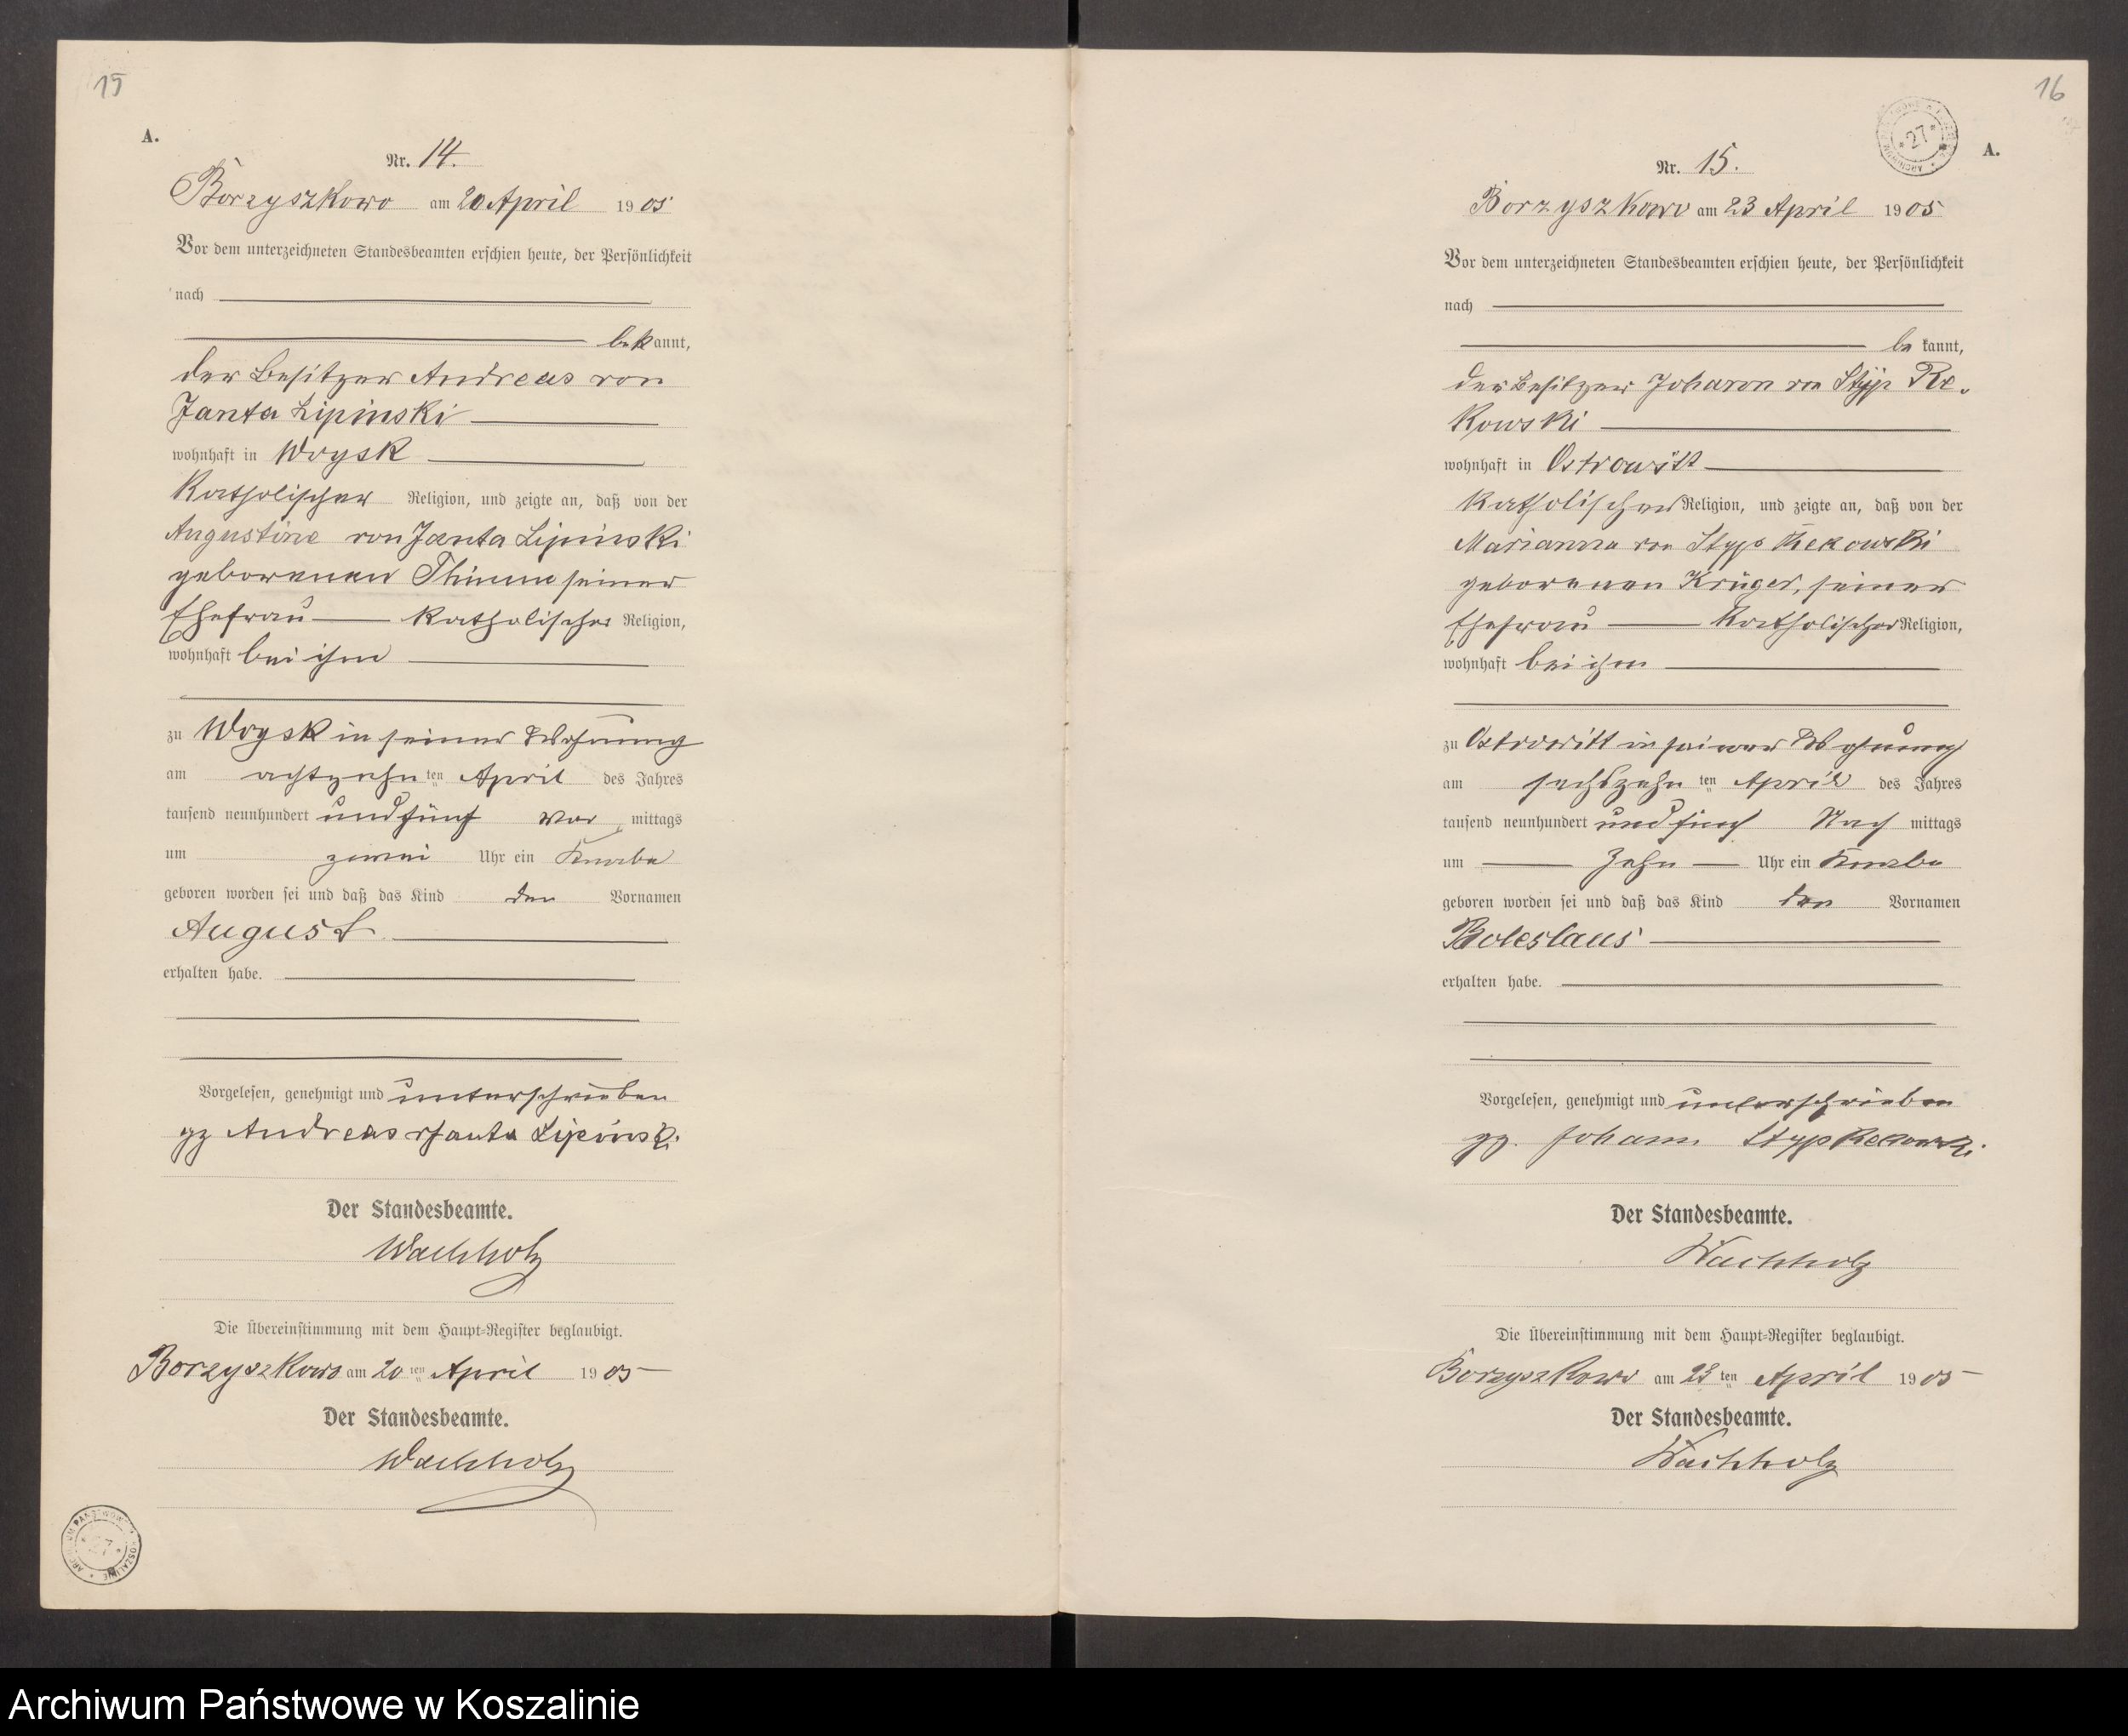 15
A.
Nr. 14.
Borzyszkowo am 20 April 1905
Vor dem unterzeichneten Standesbeamten erschien heute, der Persönlichkeit
nach
bekannt,
der Besitzer Andreas von
Janta Lipinski
wohnhaft in Woysk
katholischer Religion, und zeigte an, daß von der
Augustine von Janta Lipinski
geborenen seiner
Ehefrau katholischer Religion,
wohnhaft bei ihm
zu Woysk in seiner Wohnung
am achtzehn ten April des Jahres
tausend neunhundert und fünf Vor mittags
um zwei Uhr ein Knabe
geboren worden sei und daß das Kind den Vornamen
August
erhalten habe.
Vorgelesen, genehmigt und unterschrieben
gz Andreas v Janta Lipinski
Der Standesbeamte.
Wachholz
Die Übereinstimmung mit dem Haupt-Register beglaubigt.
Borzyszkowo am 20 ten April 1905
Der Standesbeamte.
Wachholz
16
27
A.
Nr. 15.
Borzyszkowo am 23 April 1905
Vor dem unterzeichneten Standesbeamten erschien heute, der Persönlichkeit
nach
be kannt,
der Besitzer Johann von Styp Re-
kowski
wohnhaft in Ostrowitt
katholischer Religion, und zeigte an, daß von der
Marianna von Styp Rekowski
geborenen Krüger, seiner
Ehefrau katholischer Religion,
wohnhaft bei ihm
zu Ostrowitt in seiner Wohnung
am sechszehn ten April des Jahres
tausend neunhundert und fünf Nach mittags
um Zehn Uhr ein Knabe
geboren worden sei und daß das Kind den Vornamen
Boleslaus
erhalten habe.
Vorgelesen, genehmigt und unterschrieben
gz. Johann Styp Rekowski
Der Standesbeamte.
Wachholz
Die Übereinstimmung mit dem Haupt-Register beglaubigt.
Borzyszkowo am 23 ten April 1905
Der Standesbeamte.
Wachholz
Archiwum Państwowe w Koszalinie